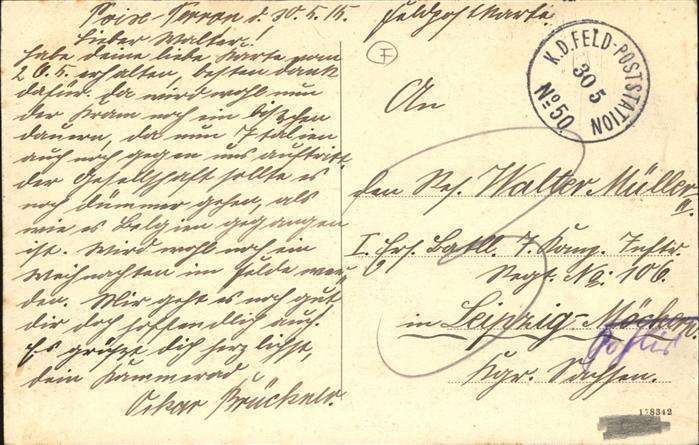 Poix-Terron d. 30.5.15.
Lieber Walter!
habe deine liebe Karte vom
26.5. erhalten, besten dank
dafür. Da wird wohl nun
der Kram noch ein bißchen
dauern, da nun Italien
auch noch gegen uns auftritt.
der Gesellschaft sollte es
noch dummer gehen, als
wie es Belgien gegangen
ist. Wird wohl noch ein
Weihnachten im Felde wer-
den. Mir geht es noch gut
dir doch hoffendlich auch.
Es grüßt dich herzlichst,
dein Kammerad
Oskar Brückner.
Feldpostkarte
K.D. FELD-POSTSTATION
30 5
No 50
An
den Res. Walter Müller
I. Ers. Batl. 7. Komp. Inftr.
Regt. No: 106
in Leipzig-Möckern.
Gohlis
Kgr. Sachsen.
178342